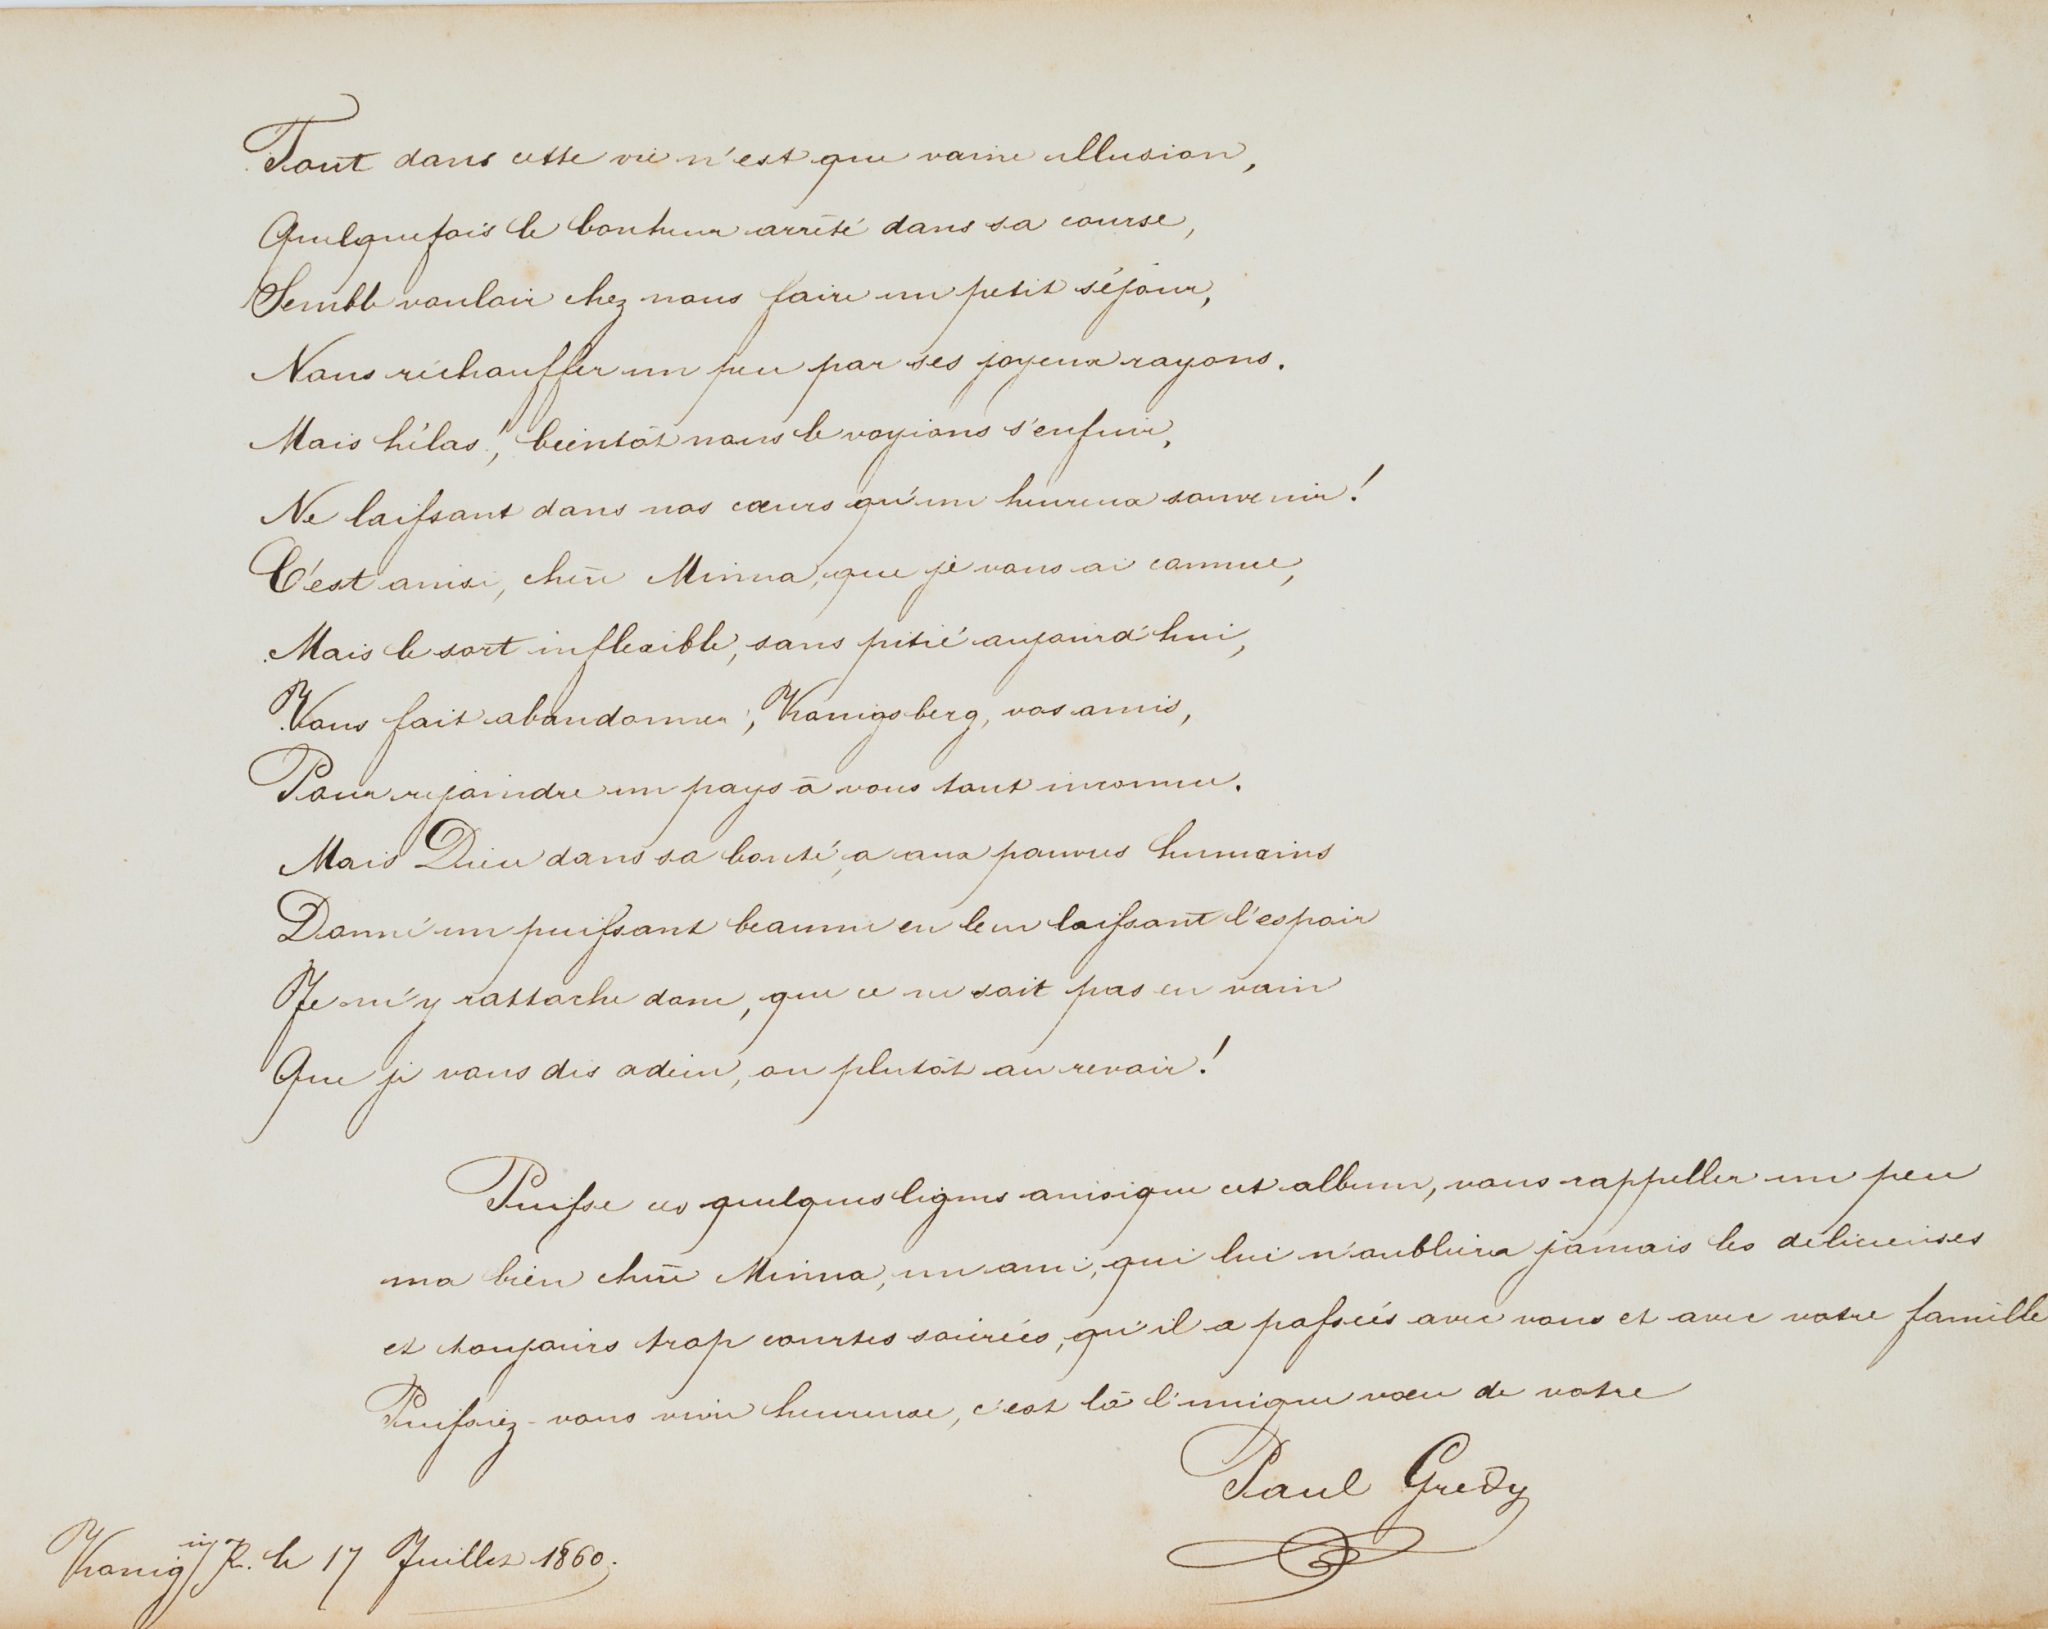 Tout dans cette vie n'est que vaine illusion,
Quelquefois le bonheur arrêté dans sa course,
Semble vouloir chez nous faire un petit séjour,
Nous réchauffer un peu par ses joyeux rayons.
Mais hélas!, bientôt nous le voyions s'enfuir,
Ne laissant dans nos cœurs qu'un heureux souvenir!
C'est ainsi, chère Minna, que je vous ai connue,
Mais le sort inflexible, sans pitié aujourd'hui,
Vous fait abandonner, Konigsberg, vos amis,
Pour rejoindre un pays à vous tout inconnu.
Mais Dieu dans sa bonté, a aux pauvres humains
Donné un puissant beaume en leur laissant l'espoir
Je m'y rattache donc, que ce ne soit pas en vain
Que je vous dis adieu, ou plutôt au revoir!
Puisse ces quelques lignes ainsi que cet album, vous rappeller un peu
ma bien chère Minna, un ami, qui lui n'oubliera jamais les delicieuses
et toujours trop courtes soirées, qu'il a passées avec vous et avec votre famille
Puissiez-vous vivre heureuse, c'est là l'unique vœu de votre
Paul Gredy
le 17 Juillet 1860.